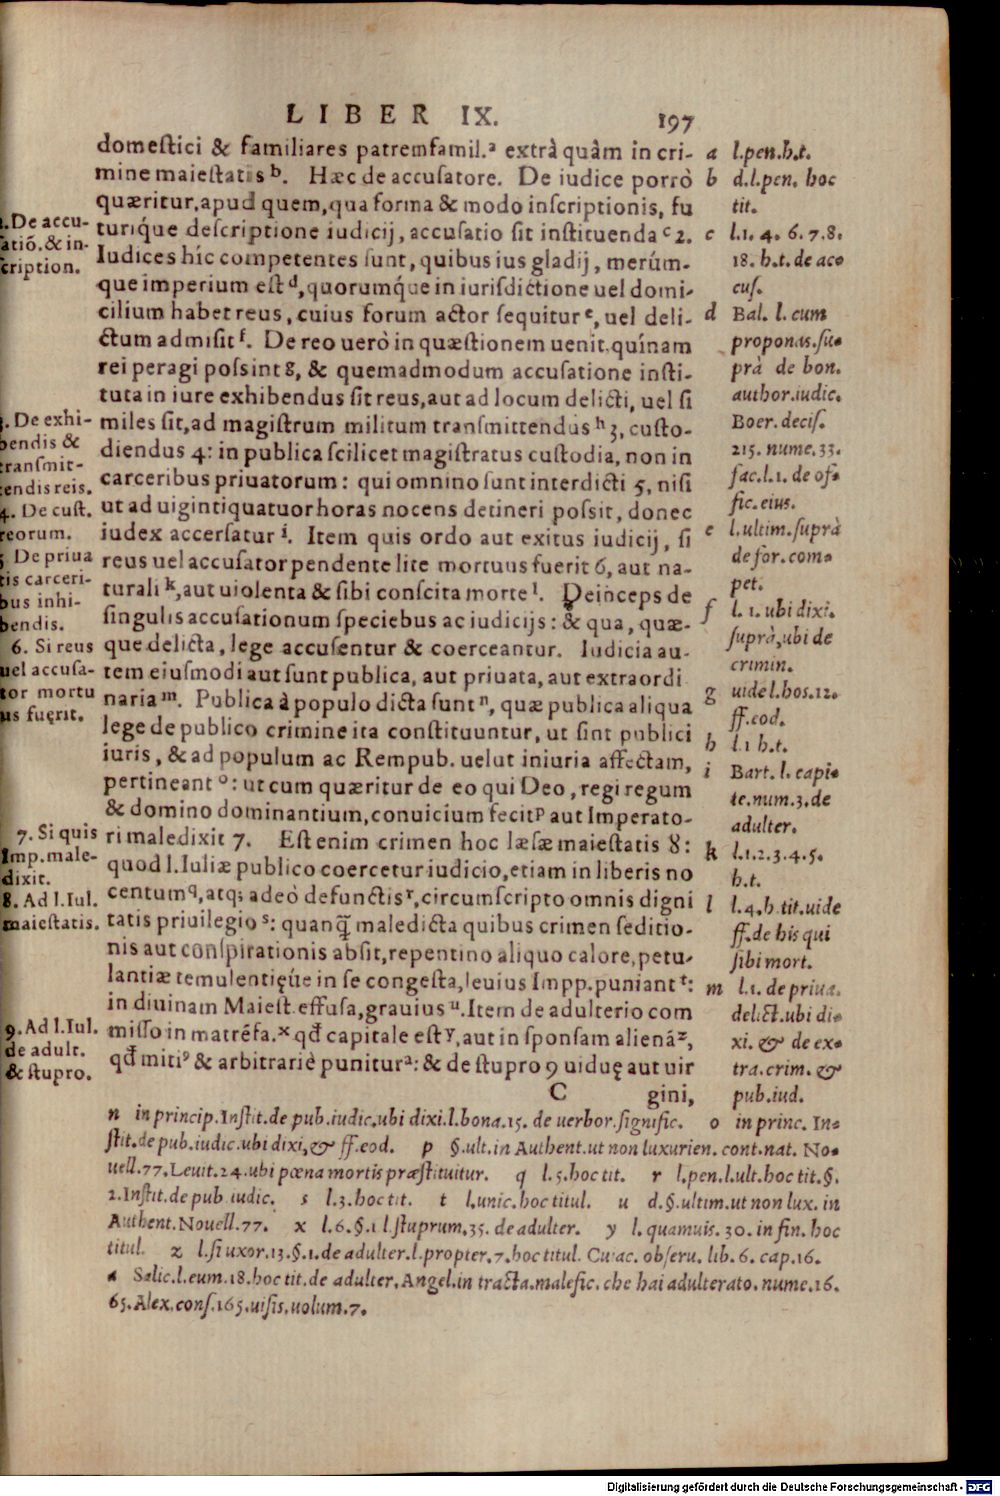 LIBER IX. 197
domestici & familiares patremfamil.ᵃ extrà quàm in cri-
mine maiestatis ᵇ. Hæc de accusatore. De iudice porrò
quæritur, apud quem, qua forma & modo inscriptionis, fu
turiq́ue descriptione iudicij, accusatio sit instituenda ᶜ 2.
Iudices híc competentes sunt, quibus ius gladij, merúm-
que imperium est ᵈ, quorumq́ue in iurisdictione uel domi-
cilium habet reus, cuius forum actor sequitur ᵉ, uel deli-
ctum admisit ᶠ. De reo uerò in quæstionem uenit, quínam
rei peragi possint g, & quemadmodum accusatione insti-
tuta in iure exhibendus sit reus, aut ad locum delicti, uel si
miles sit, ad magistrum militum transmittendus ʰ 3, custo-
diendus 4: in publica scilicet magistratus custodia, non in
carceribus priuatorum: qui omnino sunt interdicti 5, nisi
ut ad uigintiquatuor horas nocens detineri possit, donec
iudex accersatur ⁱ. Item quis ordo aut exitus iudicij, si
reus uel accusator pendente lite mortuus fuerit 6, aut na-
turali ᵏ, aut uiolenta & sibi conscita morte ˡ. Deinceps de
singulis accusationum speciebus ac iudicijs: & qua, quæ-
que delicta, lege accusentur & coerceantur. Iudicia au-
tem eiusmodi aut sunt publica, aut priuata, aut extraordi
naria ᵐ. Publica à populo dicta sunt ⁿ, quæ publica aliqua
lege de publico crimine ita constituuntur, ut sint publici
iuris, & ad populum ac Rempub. uelut iniuria affectam,
pertineant ᵒ: ut cum quæritur de eo qui Deo, regi regum
& domino dominantium, conuicium fecit ᵖ aut Imperato-
ri maledixit 7. Est enim crimen hoc læsæ maiestatis 8:
quod l. Iuliæ publico coercetur iudicio, etiam in liberis no
centum q, atq; adeò defunctis ʳ, circumscripto omnis digni
tatis priuilegio ˢ: quanq̃ maledicta quibus crimen seditio-
nis aut conspirationis absit, repentino aliquo calore, petu-
lantiæ temulentięúe in se congesta, leuius Impp. puniant ᵗ:
in diuinam Maiest. effusa, grauius ᵘ. Item de adulterio com
misso in matréfa. ˣ qđ capitale est ʸ, aut in sponsam alienā ᶻ,
qđ mitiꝰ & arbitrariè punitur ᵃ: & de stupro 9 uiduę aut uir
C gini,
2. De accu-
satiõ. & in-
scription.
3. De exhi-
bendis &
transmit-
tendis reis.
4. De cust.
reorum.
5 De priua
tis carceri-
bus inhi-
bendis.
6. Si reus
uel accusa-
tor mortu
us fuęrit.
7. Si quis
Imp. male-
dixit.
8. Ad l. Iul.
maiestatis.
9. Ad l. Iul.
de adult.
& stupro.
a l. pen. h. t.
b d. l. pen. hoc
tit.
c l. 1. 4. 6. 7. 8.
18. h. t. de ac-
cus.
d Bal. l. cum
proponas. su-
prà de bon.
author. iudic.
Boer. decis.
215. nume. 33.
fac. l. 1. de of-
fic. eius.
e l. ultim. suprà
de for. com-
pet.
f l. 1. ubi dixi.
suprà, ubi de
crimin.
g uide l. hos. 12.
ff. eod.
h l. 1 h. t.
i Bart. l. capi-
te. num. 3. de
adulter.
k l. 1. 2. 3. 4. 5.
h. t.
l l. 4. h tit. uide
ff. de his qui
sibi mort.
m l. 1. de priua.
delict. ubi di-
xi. & de ex-
tra. crim. &
pub. iud.
n in princip. Instit. de pub. iudic. ubi dixi. l. bona. 15. de uerbor. signific. o in princ. In-
stit. de pub. iudic. ubi dixi, & ff. eod. p §. ult. in Authent. ut non luxurien. cont. nat. No-
uell. 77. Leuit. 24. ubi pœna mortis præstituitur. q l. 5. hoc tit. r l. pen. l. ult. hoc tit. §.
2. Instit. de pub iudic. s l. 3. hoc tit. t l. unic. hoc titul. u d. §. ultim. ut non lux. in
Authent. Nouell. 77. x l. 6. §. 1 l. stuprum. 35. de adulter. y l. quamuis. 30. in fin. hoc
titul. z l. si uxor. 13. §. 1. de adulter. l. propter. 7. hoc titul. Cuiac. obseru. lib. 6. cap. 16.
a Salic. l. eum. 18. hoc tit. de adulter. Angel. in tracta. malefic. che hai adulterato. nume. 16.
65. Alex. cons. 165. uisis. uolum. 7.
Digitalisierung gefördert durch die Deutsche Forschungsgemeinschaft - DFG